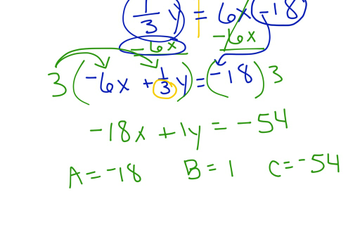 1/3 y = 6x -18
-6x -6x
3 ( -6x + 1/3 y ) = ( -18 ) 3
-18x + 1y = -54
A = -18 B = 1 C = -54